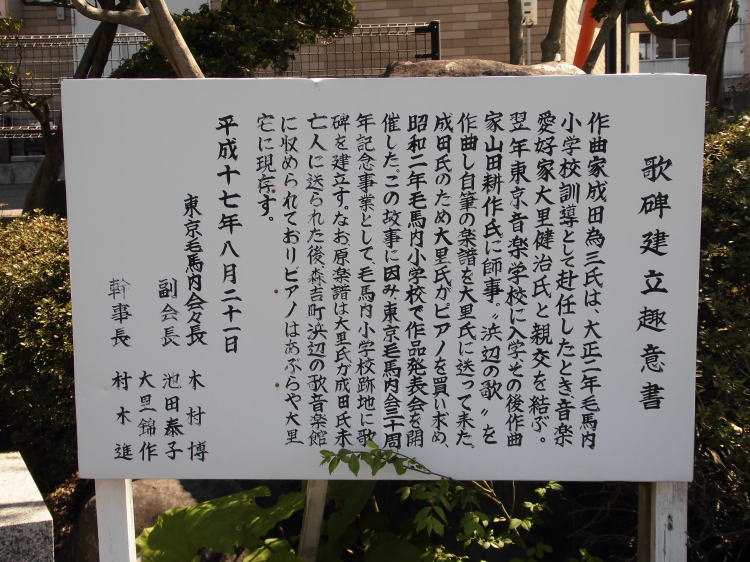 歌碑建立趣意書
作曲家成田為三氏は、大正二年毛馬内
小学校訓導として赴任したとき音楽
愛好家大里健治氏と親交を結ぶ。
翌年東京音楽学校に入学その後作曲
家山田耕作氏に師事。〝浜辺の歌〟を
作曲し自筆の楽譜を大里氏に送って来た、
成田氏のため大里氏がピアノを買い求め、
昭和二年毛馬内小学校で作品発表会を開
催した。この故事に因み、東京毛馬内会三十周
年記念事業として、毛馬内小学校跡地に歌
碑を建立す。なお原楽譜は大里氏が成田氏未
亡人に送られた後森吉町浜辺の歌音楽館
に収められておりピアノはあぶらや大里
宅に現存す。
平成十七年八月二十一日
東京毛馬内会々長 木村博
副会長 池田泰子
大里錦作
幹事長 村木進